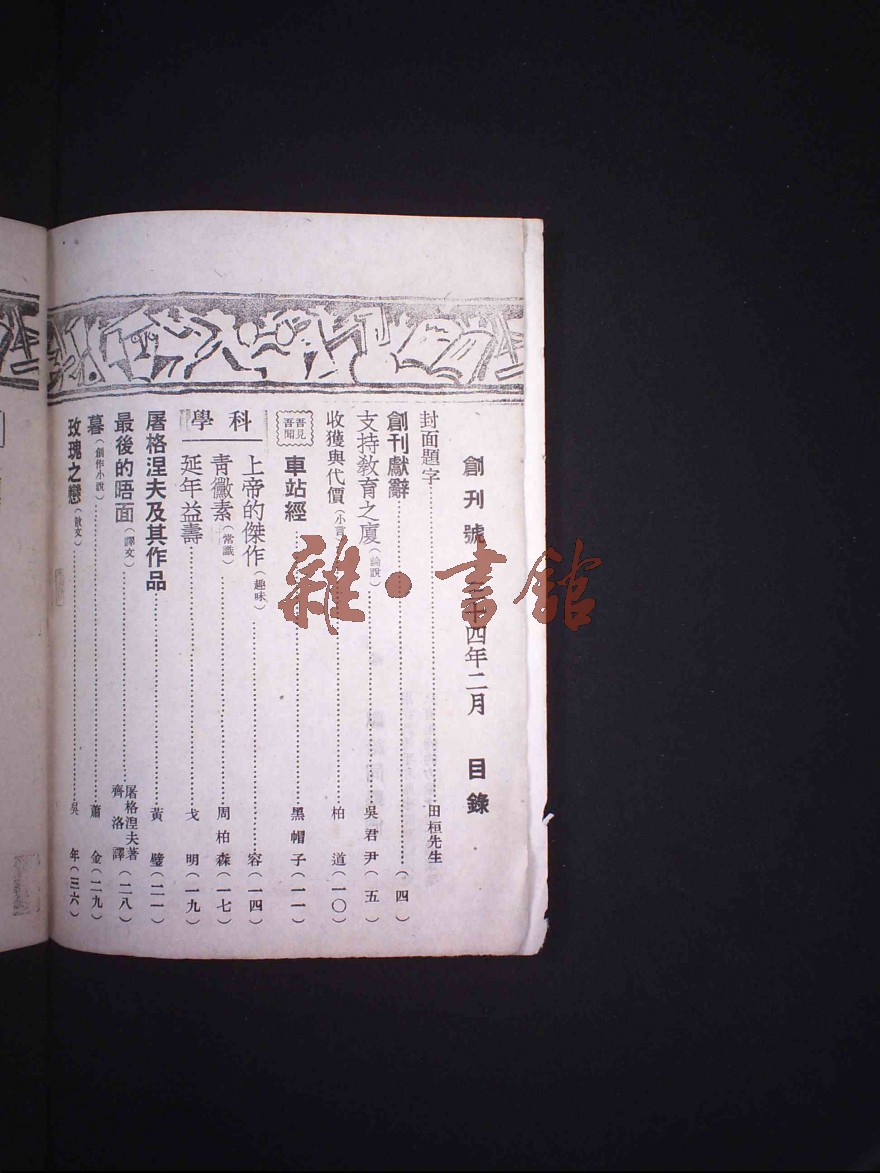 創刊號 三十四年二月 目錄
封面題字 田桓先生
創刊獻辭 (四)
支持教育之廈(論說) 吳君尹(五)
收獲與代價(小言) 柏道(一〇)
吾見吾聞
車站經 黑帽子(一一)
科學
上帝的傑作(趣味) 容(一四)
青黴素(常識) 周柏森(一七)
延年益壽 戈明(一九)
屠格涅夫及其作品 黃璧(二一)
最後的晤面(譯文) 屠格涅夫著 齊洛譯(二八)
暮(創作小說) 蕭金(二九)
玫瑰之戀(散文) 吳年(三六)
雜·書館